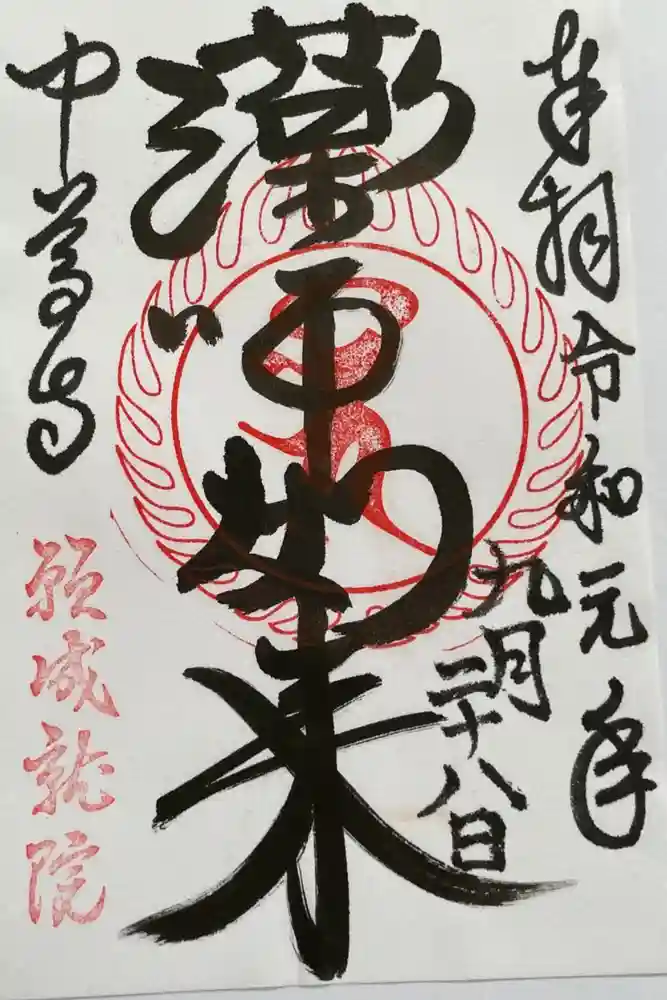 奉拝 令和元年
九月二十八日
薬師如来
中尊寺
願成就院